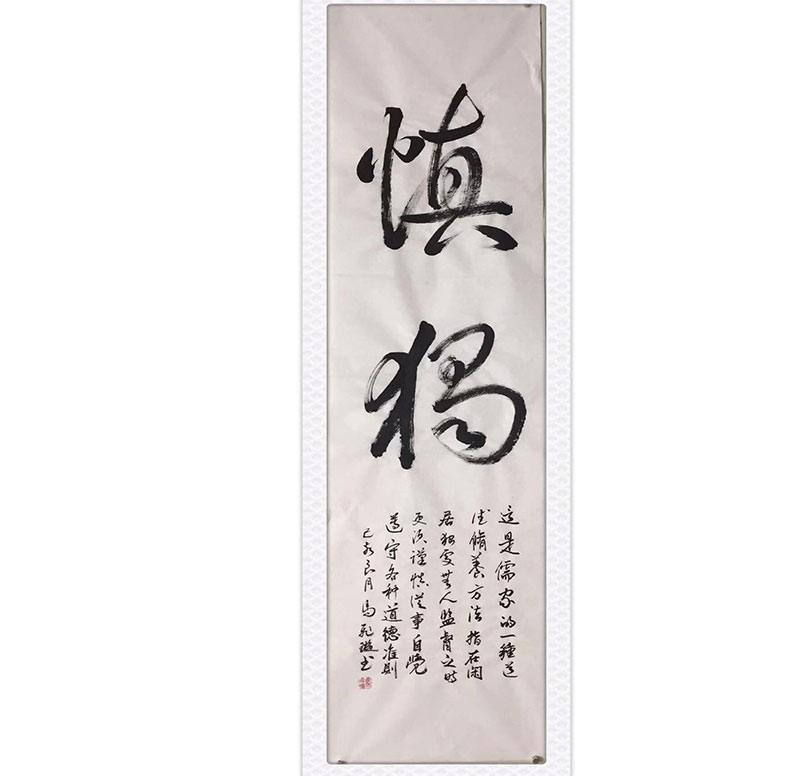 慎獨
這是儒家的一種道
德脩養方法指在閑
居獨處無人監督之時
更須謹慎從事自覺
遵守各種道德准則
己亥良月馬飛璇书